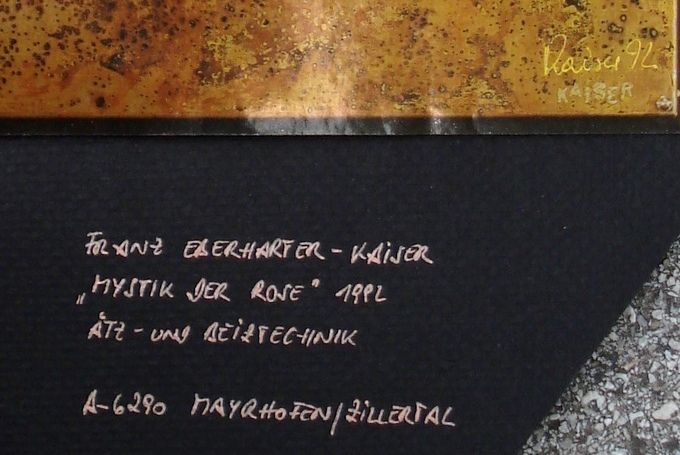 Kaiser 92
KAISER
FRANZ EBERHARTER-KAISER
„MYSTIK DER ROSE" 1992
ÄTZ-UND BEIZTECHNIK
A-6290 MAYRHOFEN/ZILLERTAL